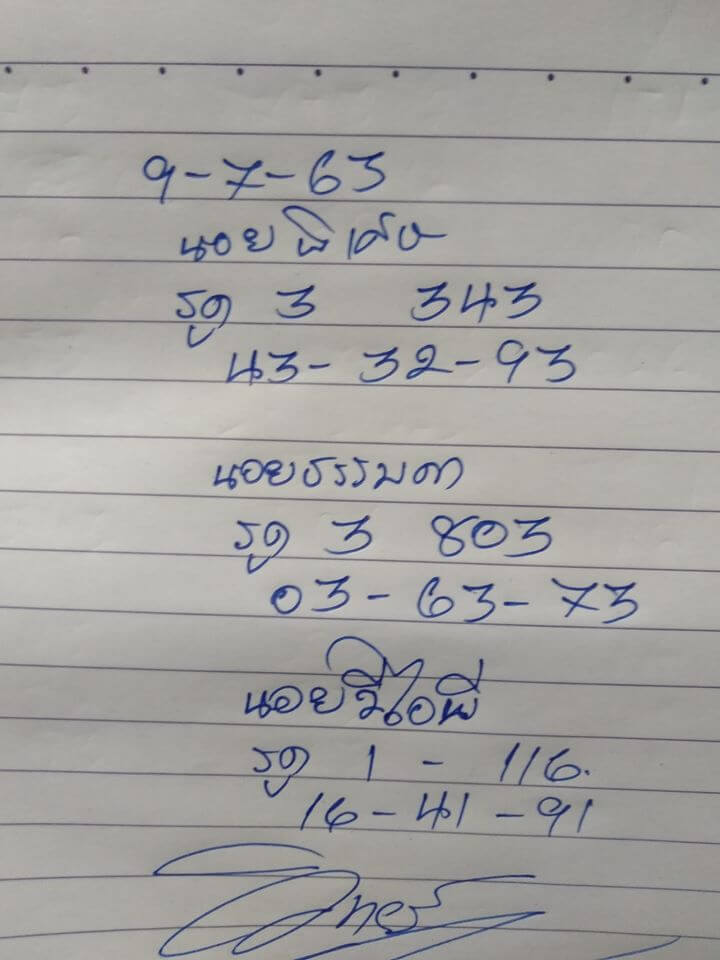 9-7-63
นอยพิเศษ
รูด 3 343
43-32-93
นอยธรรมดา
รูด 3 803
03-63-73
นอยวีไอพี
รูด 1 - 116.
16-41-91